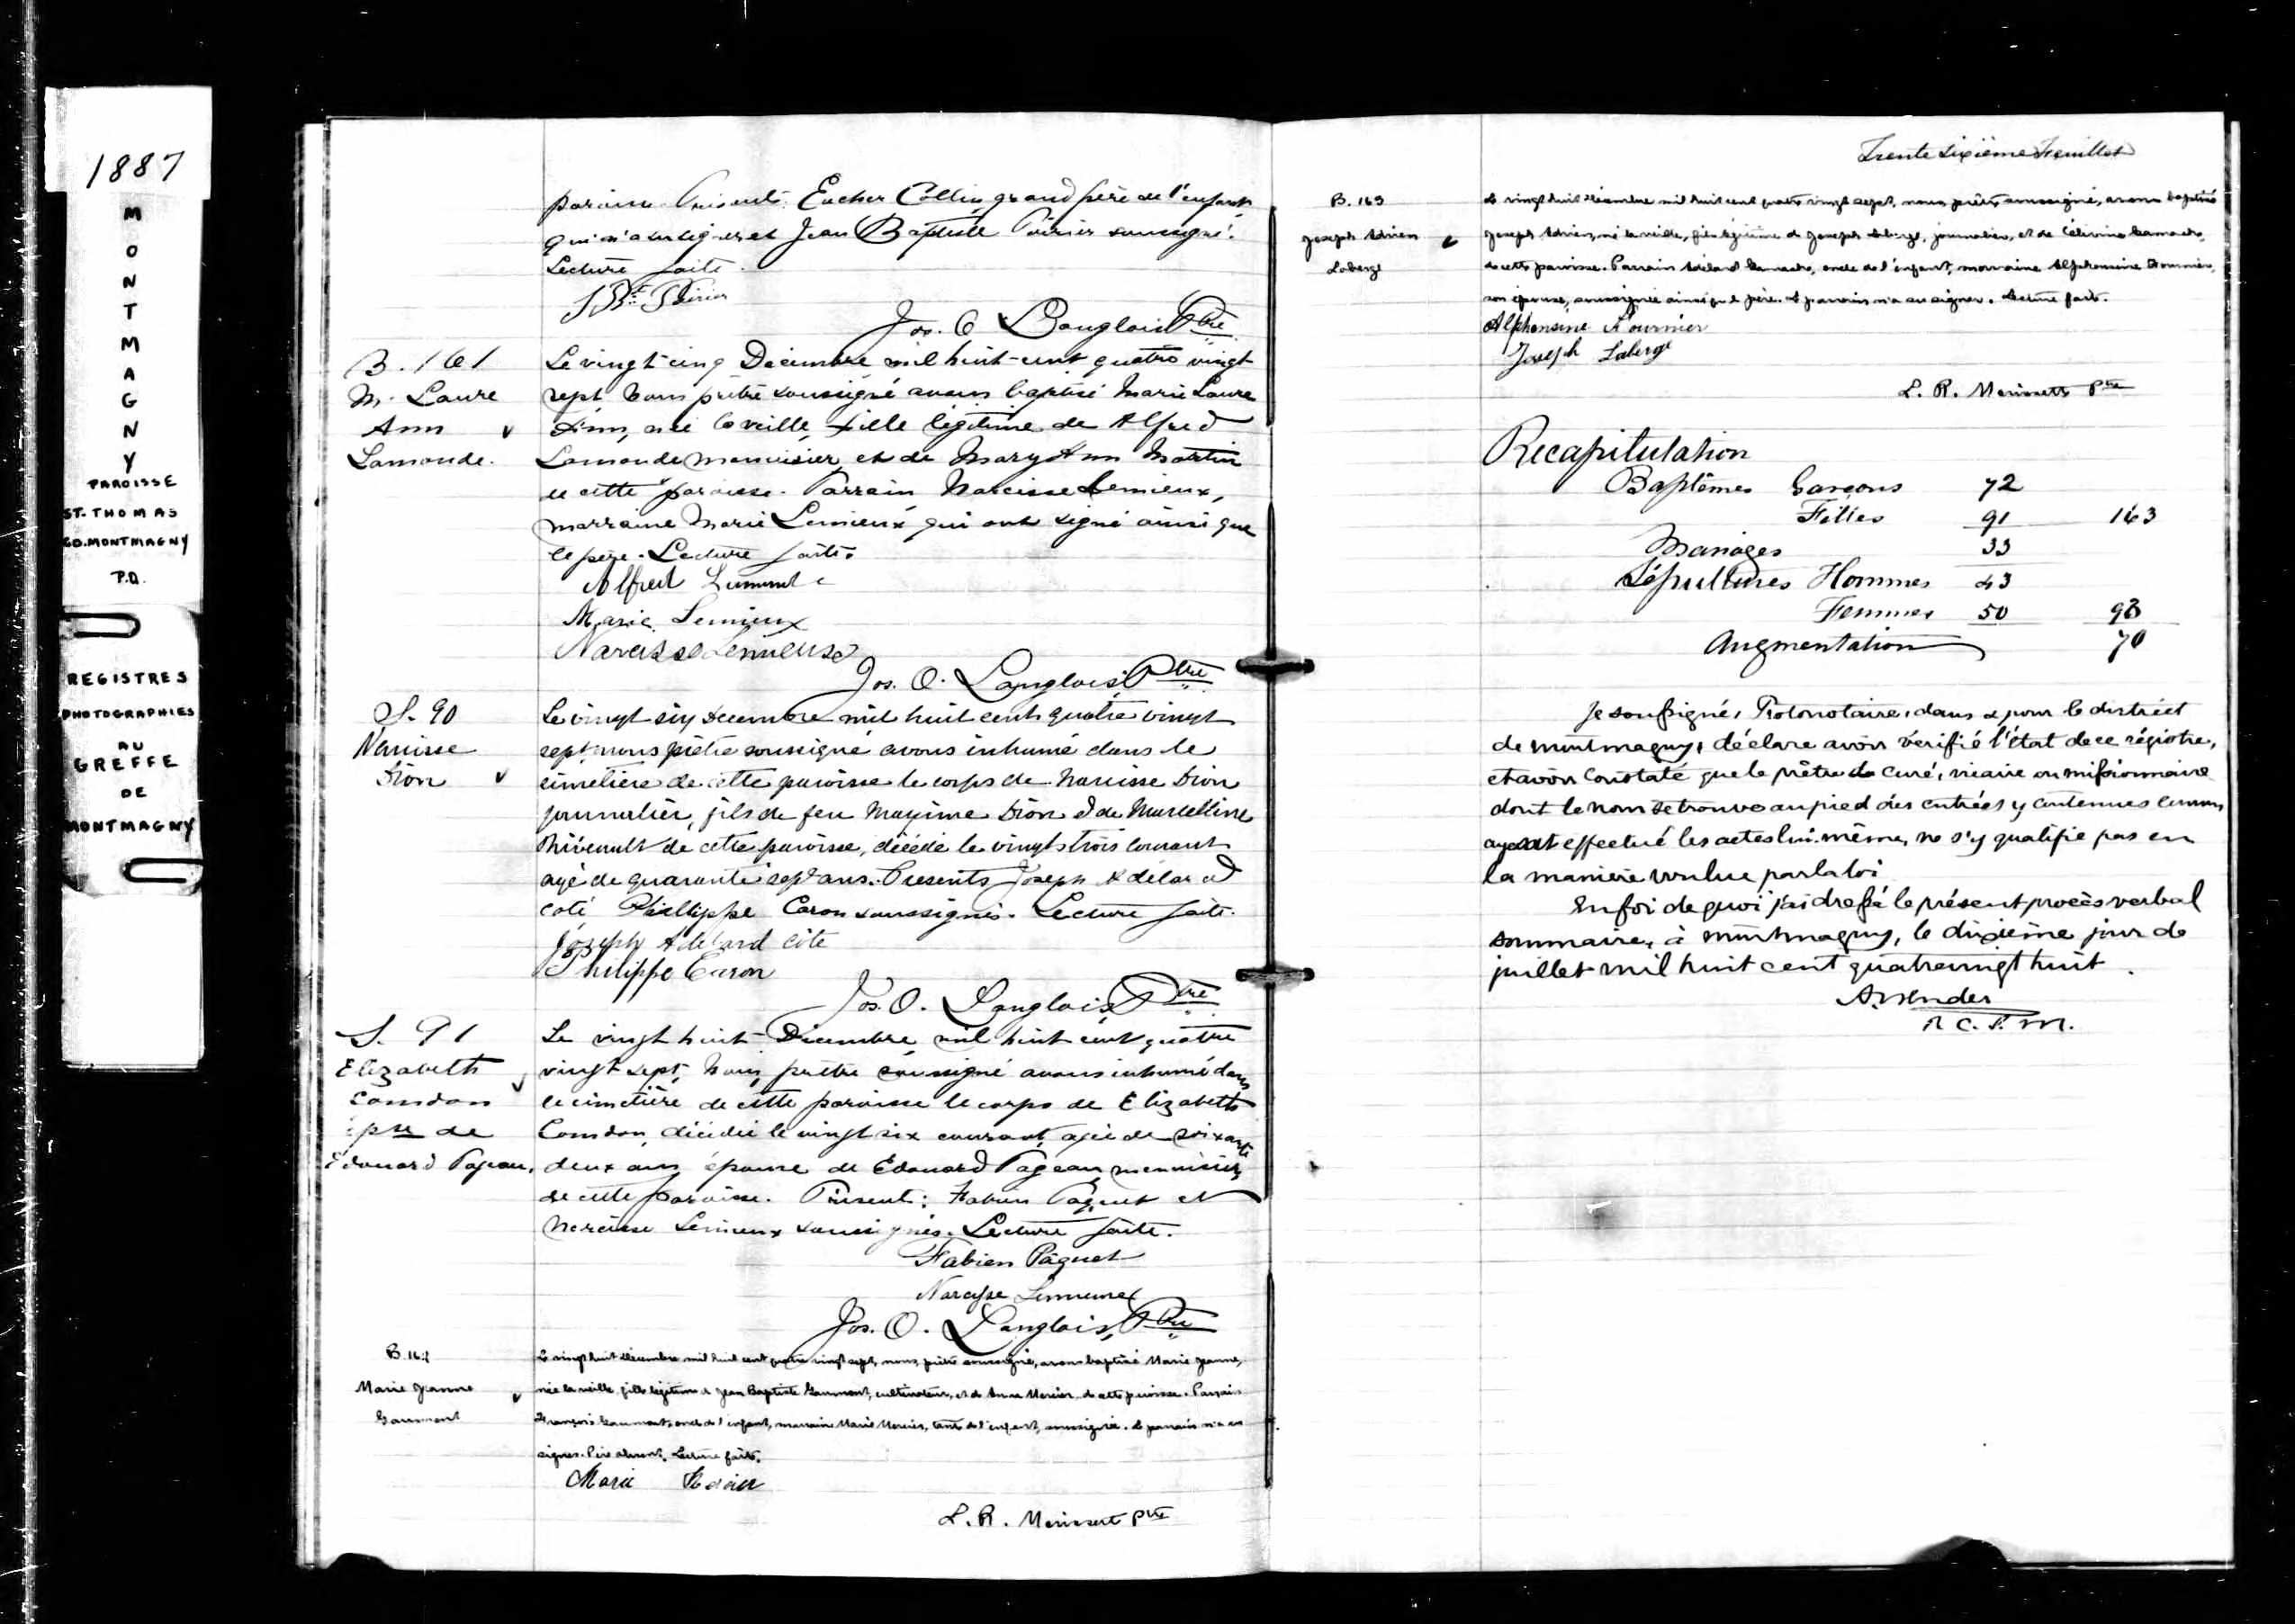 1887
MONTMAGNY
PAROISSE
ST. THOMAS
CO. MONTMAGNY
P.Q.
REGISTRES
PHOTOGRAPHIES
AU
GREFFE
DE
MONTMAGNY
paroisse. Présents: Eucher Collin grand père de l'enfant
qui n'a su signer et Jean Baptiste Poirier soussigné.
Lecture faite.
J Bte Poirier
Jos. O. Langlois Ptre
B. 161
M. Laure
Ann
Lamonde.
Le vingt-cinq Décembre mil huit-cent quatre vingt
sept. Nous prêtre soussigné avons baptisé Marie Laure
Ann, née la veille, fille légitime de Alfred
Lamonde menuisier et de Mary Ann Martin
de cette paroisse. Parrain Narcisse Lemieux,
marraine Marie Lemieux qui ont signé ainsi que
le père. Lecture faite.
Alfred Lamonde
Marie Lemieux
Narcisse Lemieux
Jos. O. Langlois Ptre
S. 90
Narcisse
Dion
Le vingt six decembre mil huit cent quatre vingt
sept, nous prêtre soussigné avons inhumé dans le
cimetière de cette paroisse le corps de Narcisse Dion
journalier, fils de feu Maxime Dion & de Marcelline
Thivault de cette paroisse, décédé le vingt trois courant
agé de quarante sept ans. Présents Joseph Adélard
Coté Phillippe Caron soussignés. Lecture faite.
Joseph Adélard Côté
Philippe Caron
Jos. O. Langlois Ptre
S. 91
Elizabeth
Comdon
épse de
Edouard Pageau.
Le vingt huit Décembre mil huit cent quatre
vingt sept, Nous prêtre soussigné avons inhumé dans
le cimetière de cette paroisse le corps de Elizabeth
Comdon, décédée le vingt six courant, agée de soixante
deux ans épouse de Edouard Pageau menuisier
de cette paroisse. Présents: Fabien Paquet et
Narcisse Lemieux soussignés. Lecture faite.
Fabien Pâquet
Narcisse Lemieux
Jos. O. Langlois, Ptre
B. 162
Marie Jeanne
Gaumont
Le vingt huit décembre mil huit cent quatre vingt sept, nous, prêtre soussigné, avons baptisé Marie Jeanne,
née la veille, fille légitime de Jean Baptiste Gaumont, cultivateur, et de Anna Mercier de cette paroisse. Parrain
François Gaumont, oncle de l'enfant, marraine Marie Mercier, tante de l'enfant, soussignée. Le parrain n'a su
signer. Père absent. Lecture faite.
Marie Mercier
L. R. Morisset Ptre
Trente Sixième Feuillet
B. 163
Joseph Adrien
Laberge
Le vingt huit décembre mil huit cent quatre vingt sept, nous, prêtre soussigné, avons baptisé
Joseph Adrien, né la veille, fils légitime de Joseph Laberge, journalier, et de Célivina Gamache,
de cette paroisse. Parrain Adélard Gamache, oncle de l'enfant, marraine Alphonsine Fournier,
son épouse, soussignée ainsi que le père. Le parrain n'a su signer. Lecture faite.
Alphonsine Fournier
Joseph Laberge
L. R. Morisset Ptre
Recapitulation
Baptêmes Garçons 72
Filles 91 163
Mariages 33
Sépultures Hommes 43
Femmes 50 93
Augmentation 70
Je soussigné, Protonotaire, dans & pour le district
de Montmagny, déclare avoir vérifié l'état de ce régistre,
et avoir constaté que le prêtre de curé, vicaire ou missionnaire
dont le nom se trouve au pied des entrées y contenues comme
ayant effectué les actes lui-même, ne s'y qualifie pas en
la manière voulue par la loi
En foi de quoi j'ai dressé le présent procès verbal
sommaire, à Montmagny, le dixième jour de
juillet mil huit cent quatrevingt huit.
A. Bender
P. C. S. M.